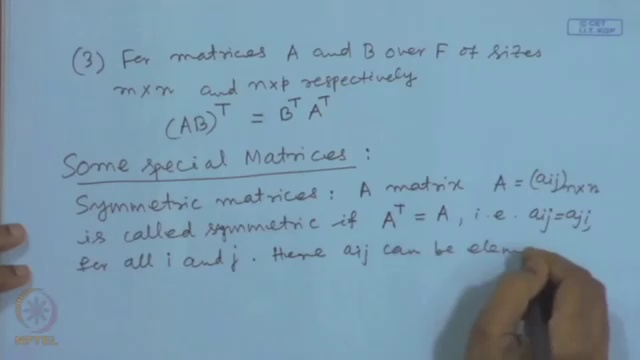 © CET
I.I.T. KGP
(3) For matrices A and B over F of sizes
m×n and n×p respectively
(AB)^T = B^T A^T
Some special Matrices :
Symmetric matrices : A matrix A = (aij)n×n
is called symmetric if A^T = A, i.e. aij = aji,
for all i and j. Hence aij can be elem
NPTEL